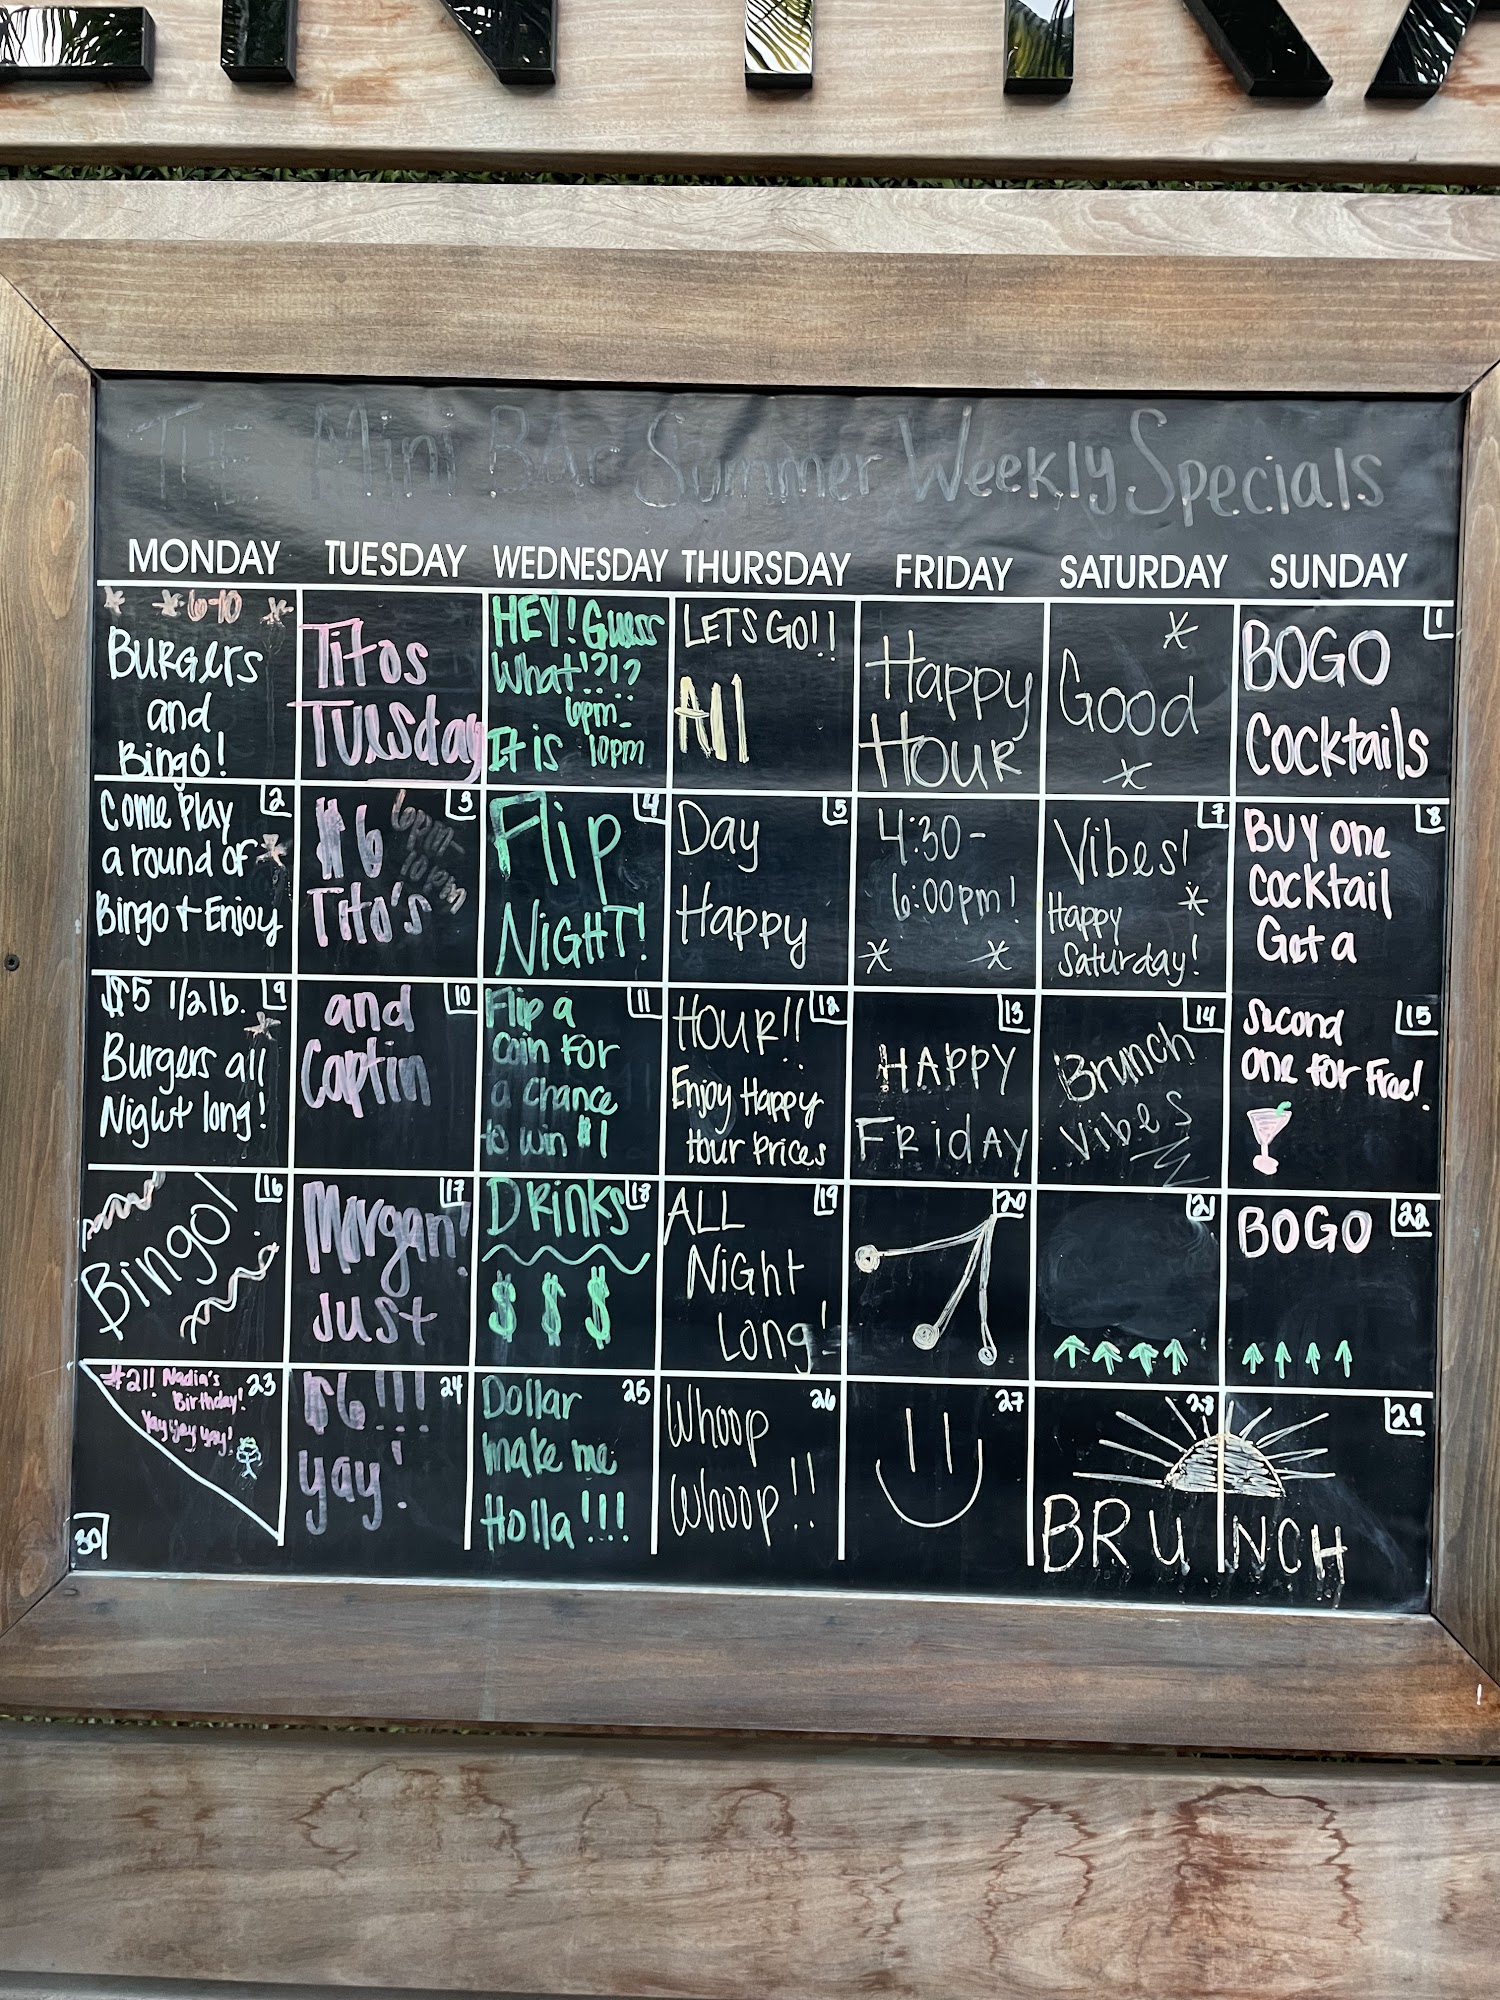 THE Mini BAr Summer Weekly Specials
MONDAY TUESDAY WEDNESDAY THURSDAY FRIDAY SATURDAY SUNDAY
6-10
Burgers
and
Bingo!
2
Come Play
a round of
Bingo + Enjoy
9
$5 1/2 lb.
Burgers all
Night long!
16
Bingo!
23
#21!! Nadia's
Birthday!
Yay yay yay!
30
Titos
Tuesday
3
$6 6pm-
10pm
Tito's
10
and
Captin
17
Morgan!
Just
24
$6!!!
yay!
HEY! Guess
What!?!?
It is 6pm-
10pm
4
Flip
NiGHT!
11
Flip a
coin For
a Chance
to win $1
18
DRinks
$ $ $
25
Dollar
make me
Holla!!!
LETS GO!!
All
5
Day
Happy
12
HOUR!!
Enjoy Happy
Hour Prices
19
ALL
NiGht
Long!
26
Whoop
Whoop!!
Happy
Hour
4:30-
6:00pm!
13
HAPPY
FRiDAY
20
27
Good
7
Vibes!
Happy
Saturday!
14
Brunch
Vibes
21
28
1
BOGO
Cocktails
8
Buy one
Cocktail
Get a
15
Second
one For Free!
22
BOGO
29
BRUNCH